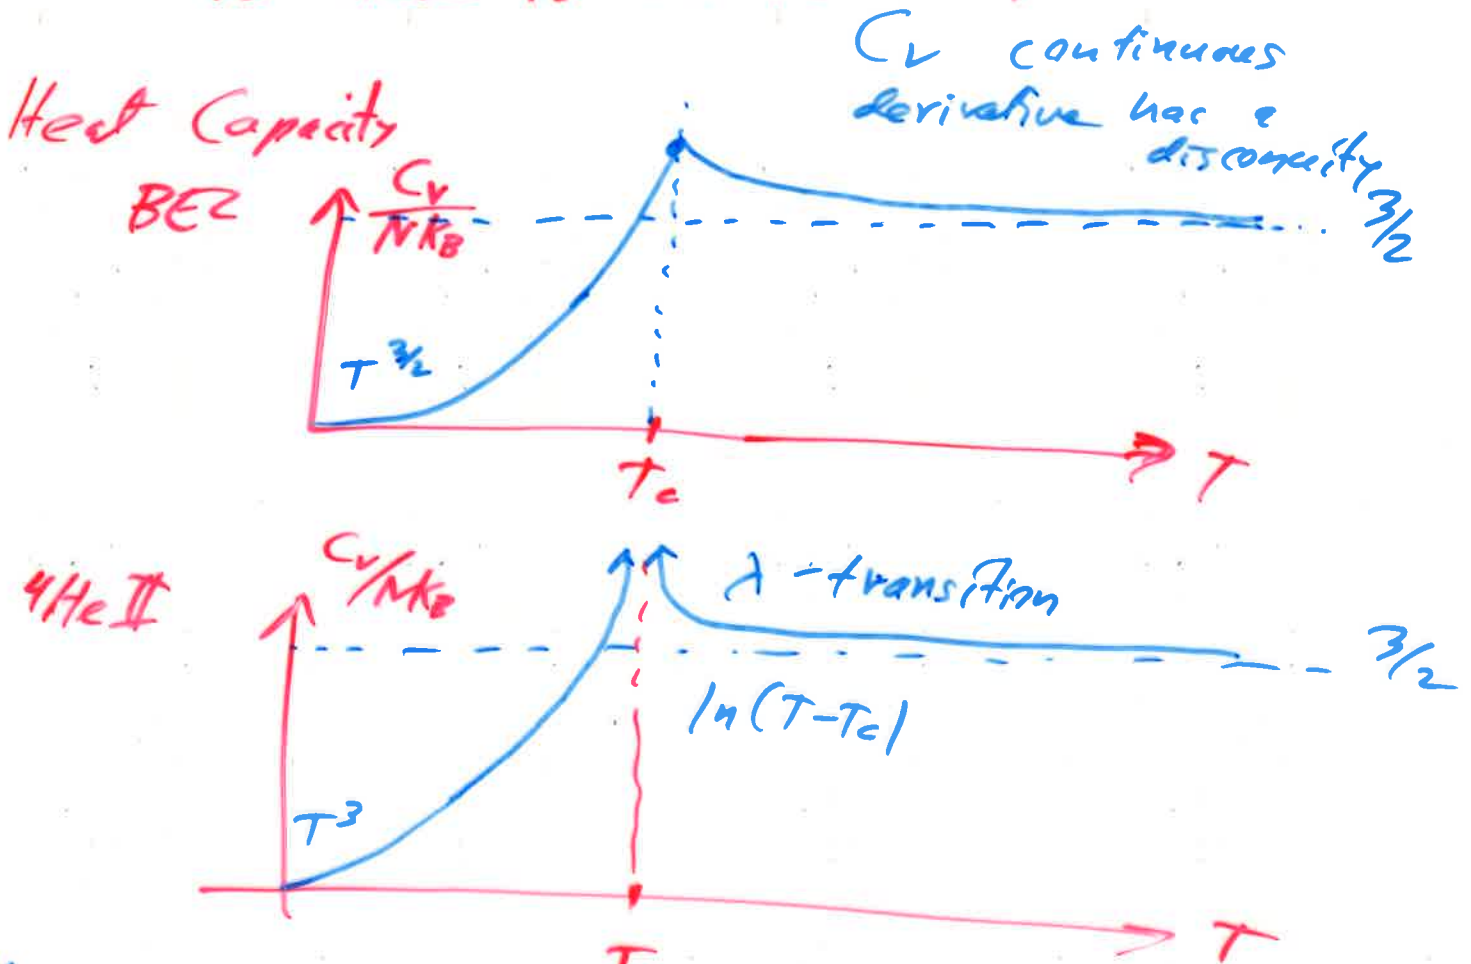 C_v continuous
derivative has a
Heat Capacity
BEC
C_v/Nk_B
3/2
T^3/2
T_c
T
4He II
C_v/Nk_B
λ-transition
3/2
ln(T-T_c)
T^3
T